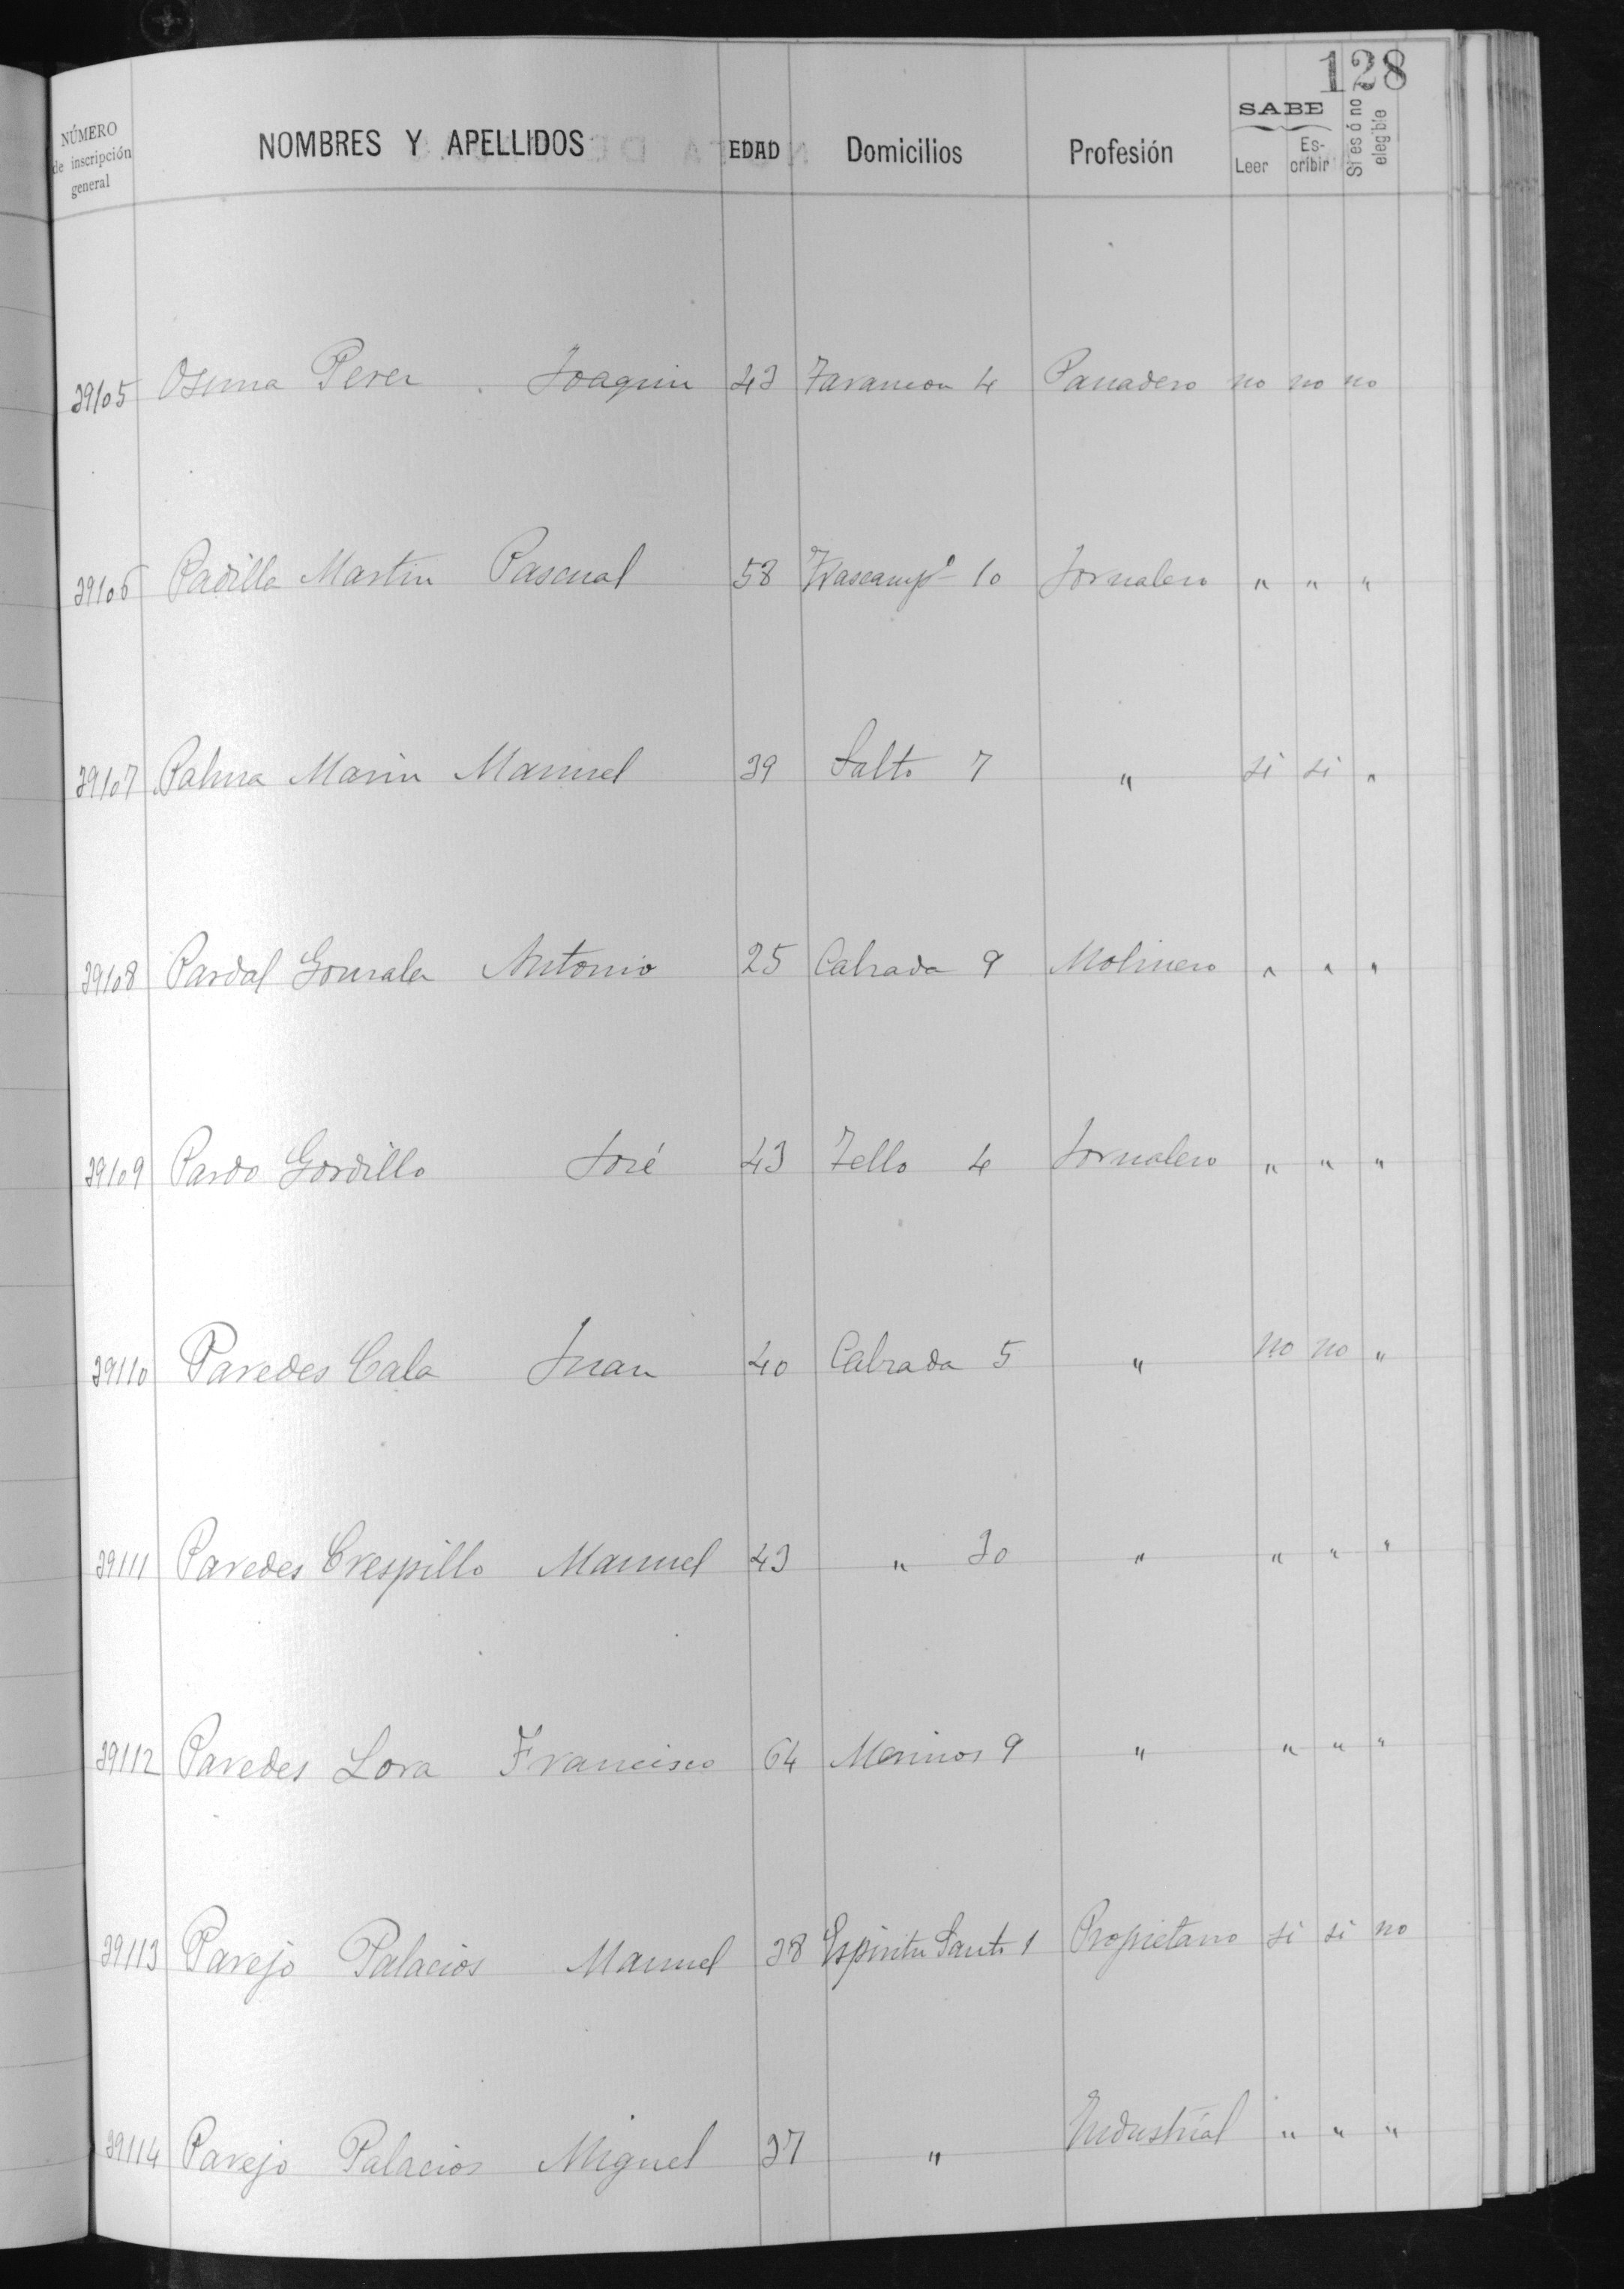 128
NÚMERO de inscripción general NOMBRES Y APELLIDOS EDAD Domicilios Profesión SABE Leer Escribir Si es ó no elegible
39105 Osuna Perez Joaquin 43 Tarancon 4 Panadero no no no
39106 Padilla Martin Pascual 58 10 Jornalero " " "
39107 Palma Marin Manuel 39 Salto 7 " si si "
39108 Pardal Gonzalez Antonio 25 Calzada 9 Molinero " " "
39109 Pardo Gordillo José 43 Tello 4 Jornalero " " "
39110 Paredes Cala Juan 40 Calzada 5 " no no "
39111 Paredes Crespillo Manuel 43 " 30 " " " "
39112 Paredes Lora Francisco 64 Merinos 9 " " " "
39113 Parejo Palacios Manuel 38 Espiritu Santo 1 Propietario si si no
39114 Parejo Palacios Miguel 37 " Industrial " " "